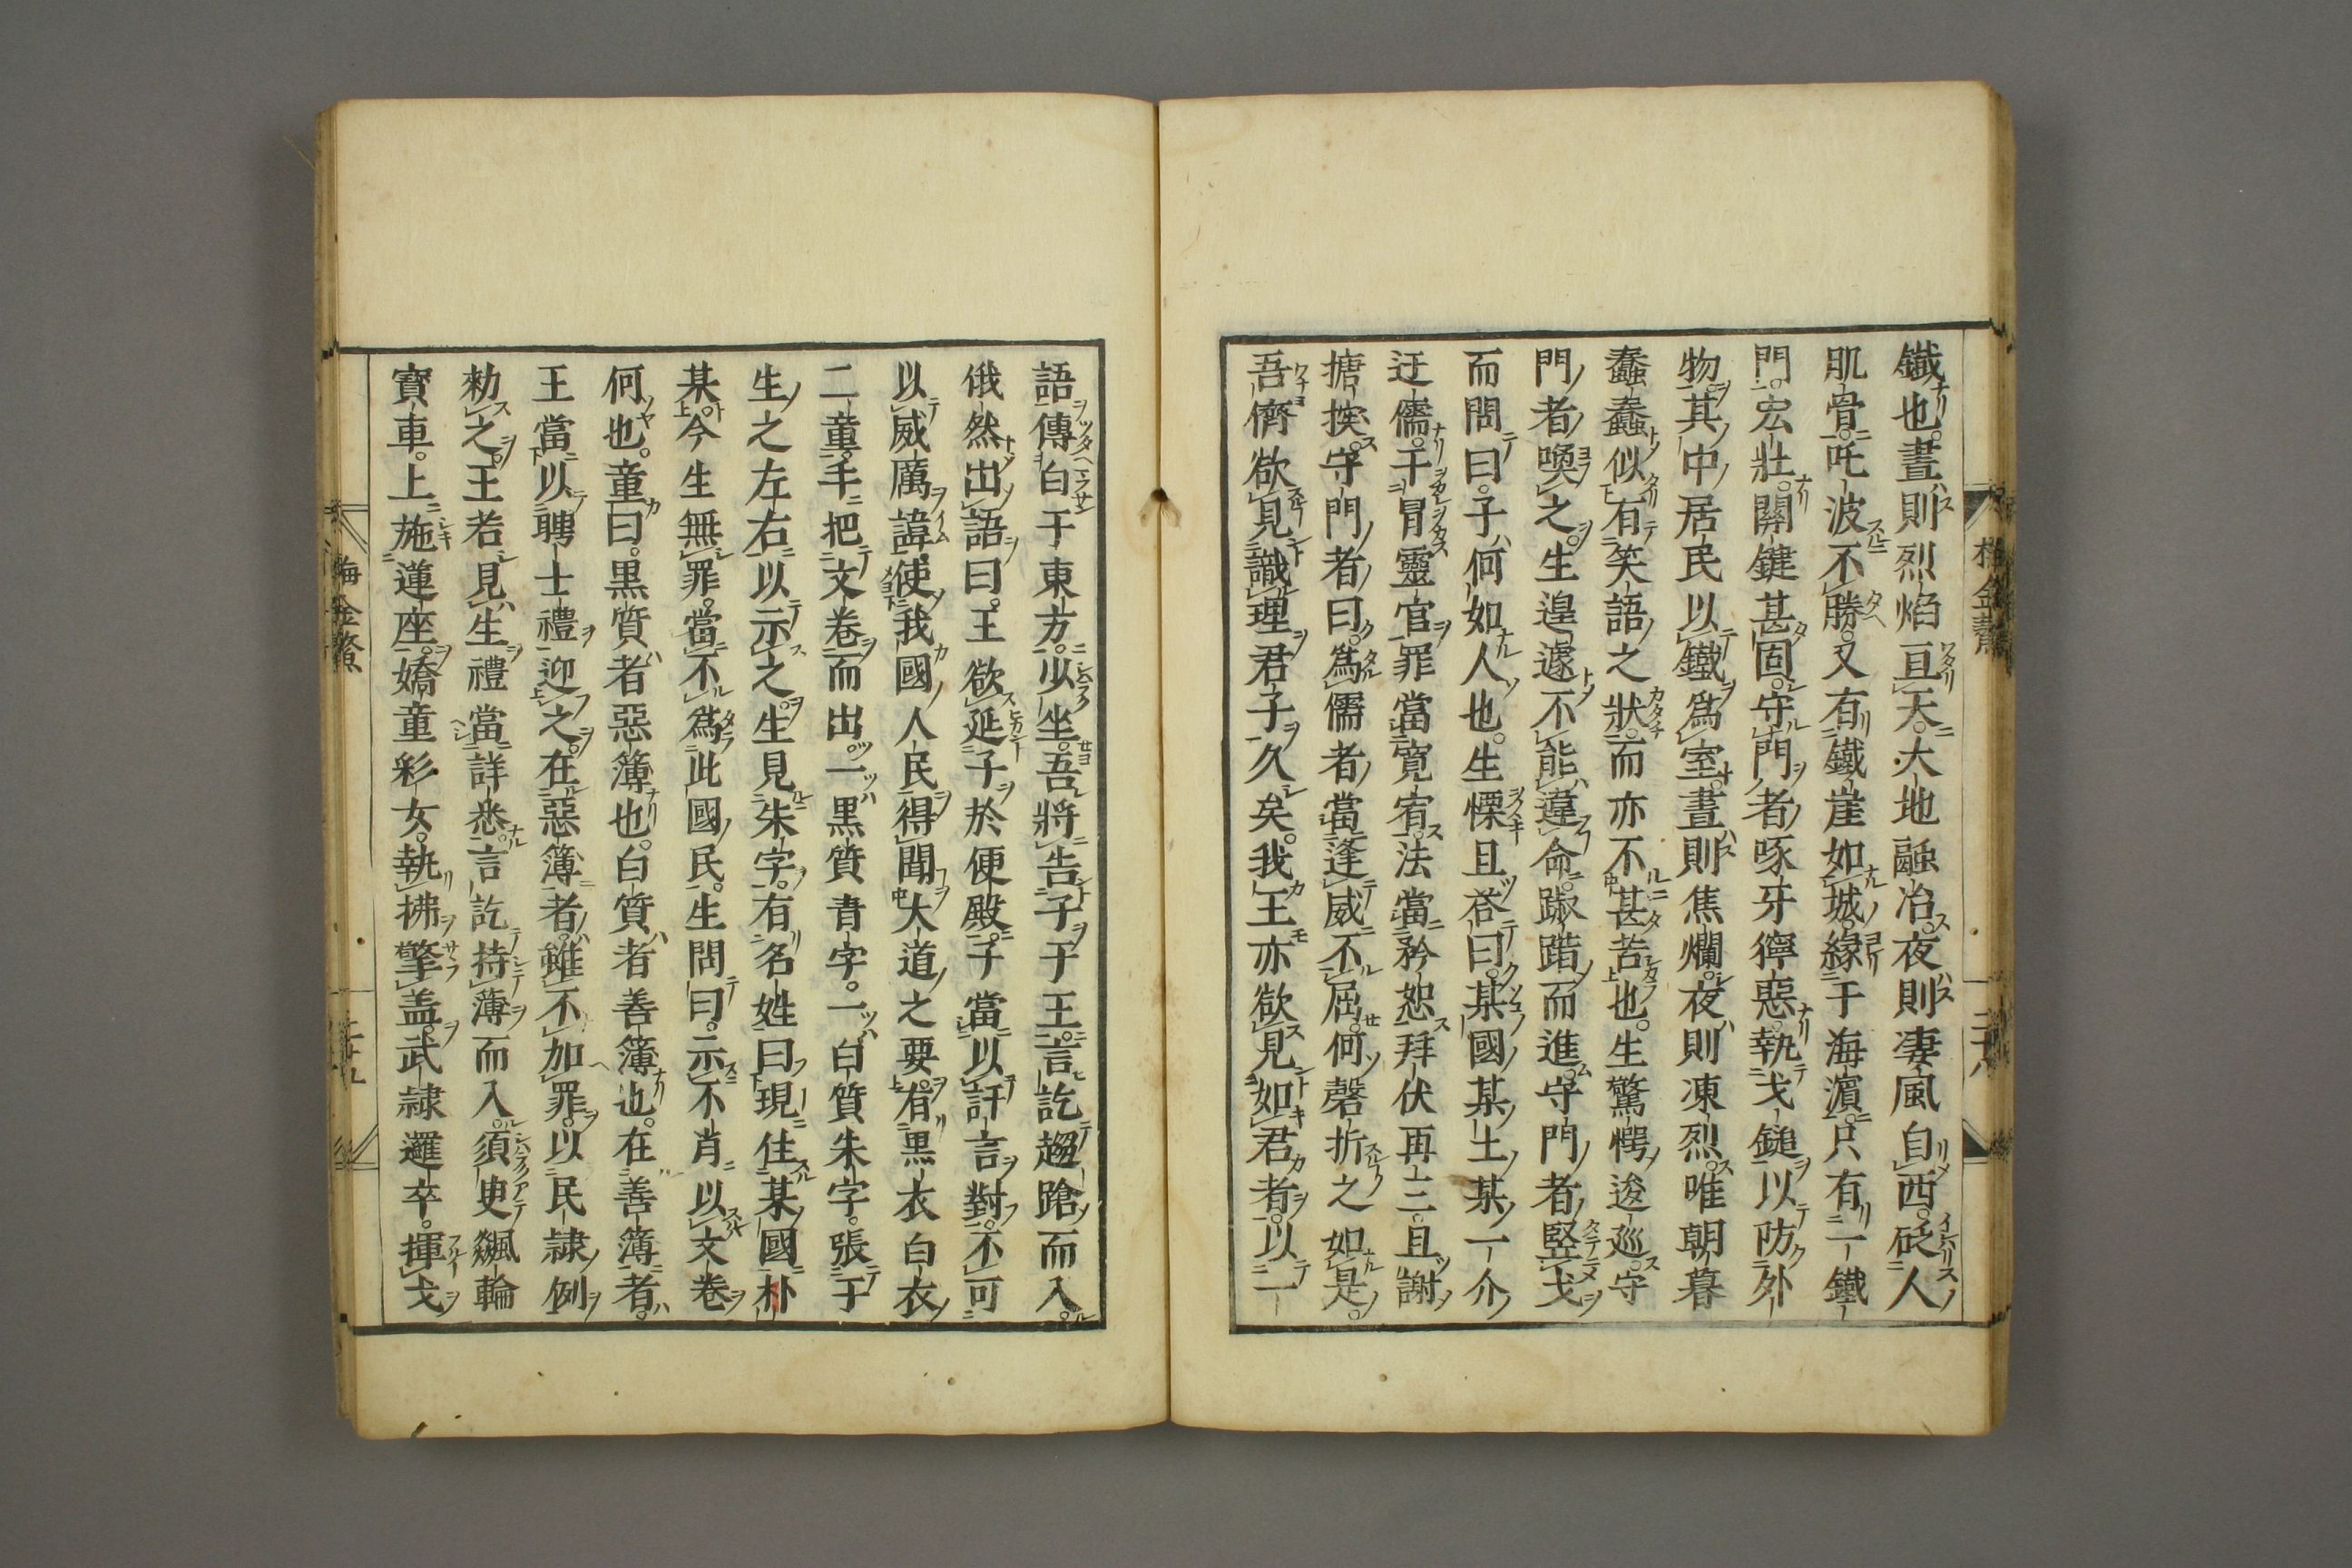 鐵也。晝則烈焰亘天。大地融冶。夜則凄風自西。砭人
肌骨。吒波不勝。又有鐵崖如城。緣于海濱。只有一鐵
門。宏壯。關鍵甚固。守門者啄牙獰惡。執戈鎚以防外
物。其中居民以鐵爲室。晝則焦爛。夜則凍烈。唯朝暮
蠢蠢似有笑語之狀。而亦不甚苦也。生驚愕逡巡。守
門者喚之。生遑遽不能違命。踧踖而進。守門者竪戈
而問曰。子何如人也。生慄且答曰。某國某土某一介
迂儒。干冒靈官罪當寬宥。法當矜恕。拜伏再三。且謝
搪揬。守門者曰。爲儒者當逢威不屈。何磬折之如是。
吾儕欲見識理君子久矣。我王亦欲見如君者。以一
語傳白于東方。少坐。吾將告子于王。言訖趨蹌而入。
俄然出語曰。王欲延子於便殿。子當以訐言對。不可
以威厲諱。使我國人民得聞大道之要。有黒衣白衣
二童。手把文卷而出。一黒質青字。一白質朱字。張于
生之左右。以示之。生見朱字。有名姓曰。現住某國朴
某今生無罪。當不爲此國民。生問曰。示不肖以文卷
何也。童曰。黒質者惡簿也。白質者善簿也。在善簿者。
王當以聘士禮迎之。在惡簿者。雖不加罪。以民隷例
勑之。王若見生禮當詳悉。言訖持薄而入。須臾飆輪
寶車。上施蓮座。嬌童彩女。執拂擎盖。武隷邏卒。揮戈
梅金鰲
梅金鰲